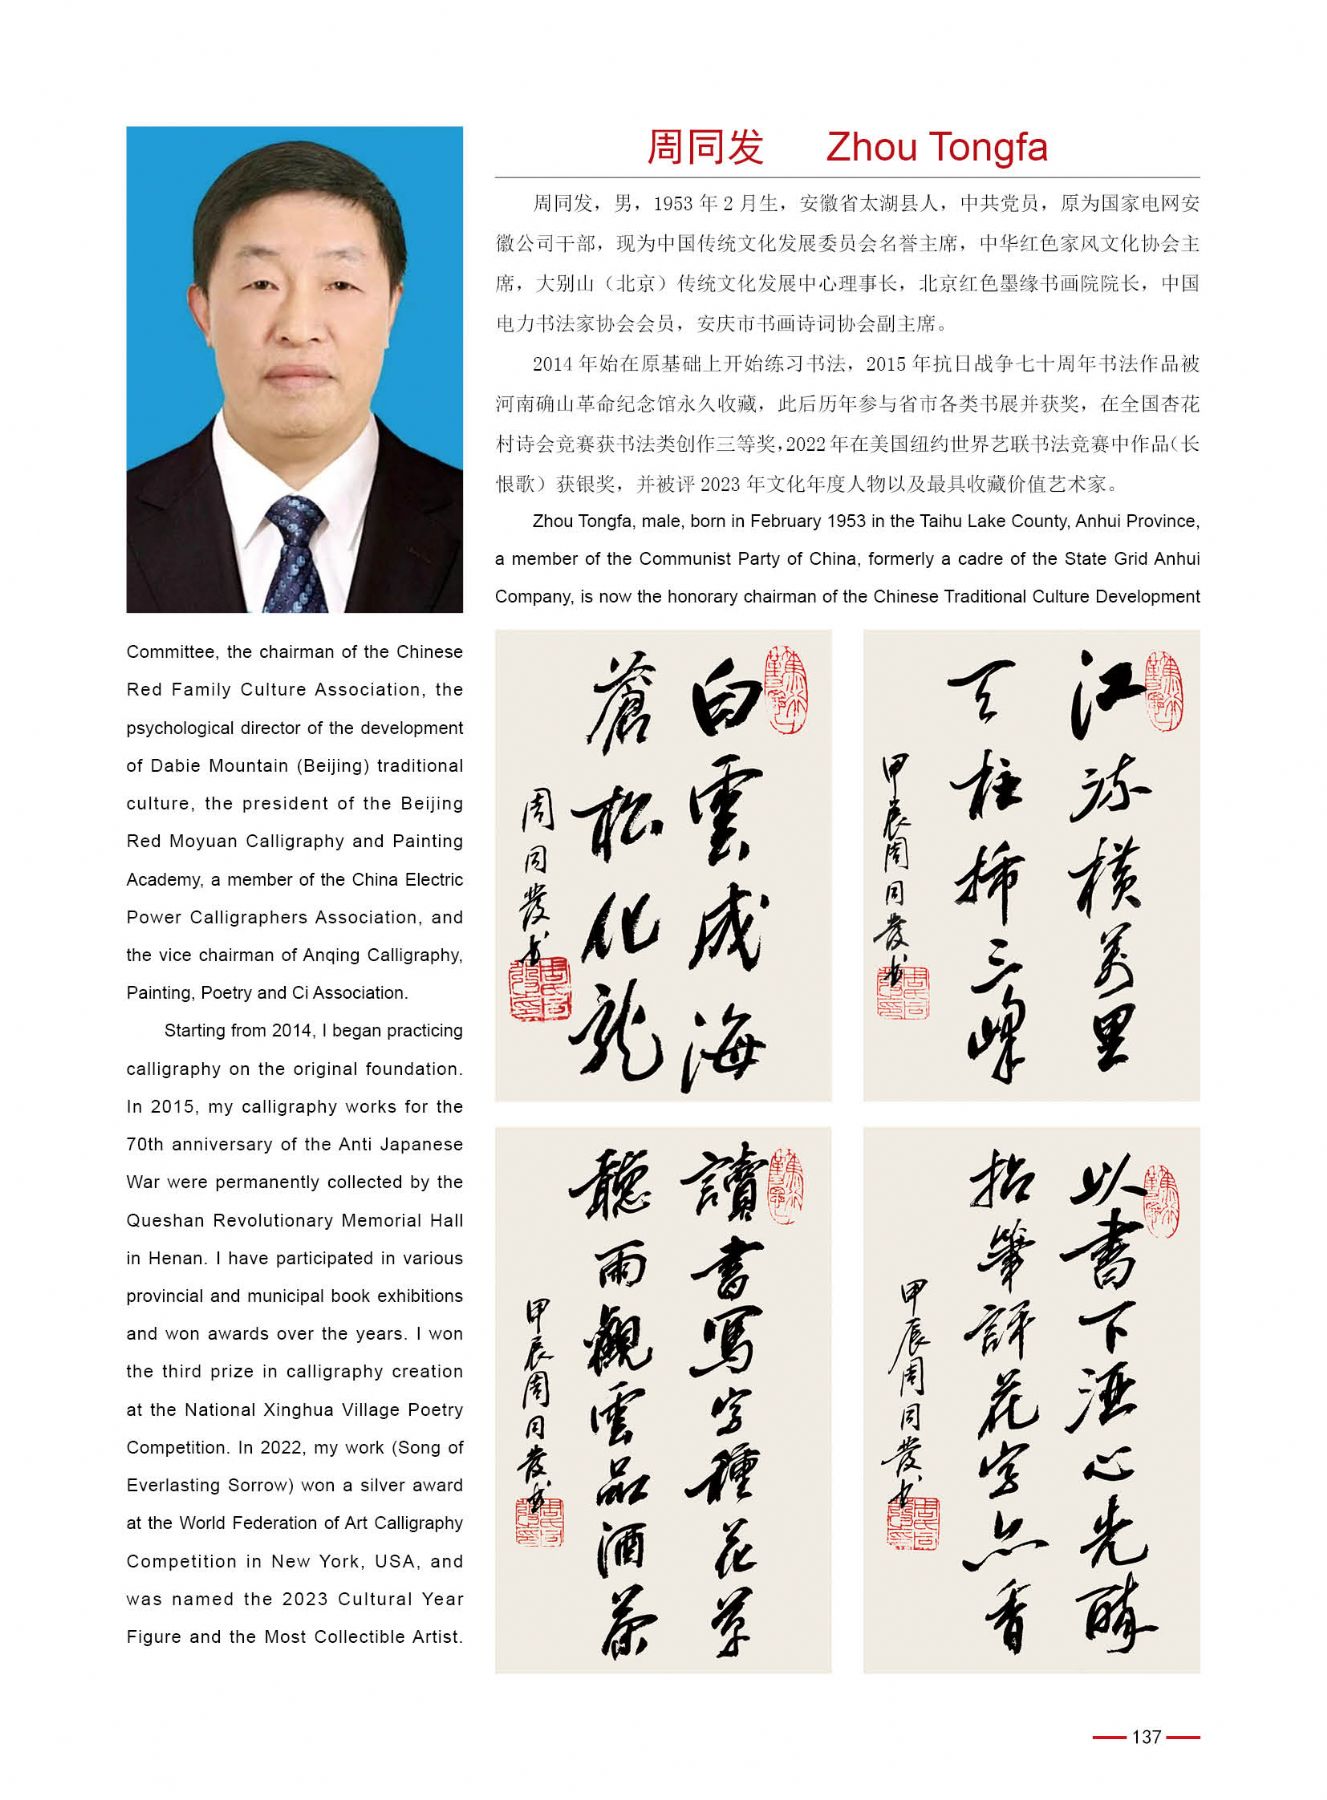 周同发 Zhou Tongfa
周同发，男，1953 年 2 月生，安徽省太湖县人，中共党员，原为国家电网安
徽公司干部，现为中国传统文化发展委员会名誉主席，中华红色家风文化协会主
席，大别山（北京）传统文化发展中心理事长，北京红色墨缘书画院院长，中国
电力书法家协会会员，安庆市书画诗词协会副主席。
2014 年始在原基础上开始练习书法，2015 年抗日战争七十周年书法作品被
河南确山革命纪念馆永久收藏，此后历年参与省市各类书展并获奖，在全国杏花
村诗会竞赛获书法类创作三等奖，2022 年在美国纽约世界艺联书法竞赛中作品（长
恨歌）获银奖，并被评 2023 年文化年度人物以及最具收藏价值艺术家。
Zhou Tongfa, male, born in February 1953 in the Taihu Lake County, Anhui Province,
a member of the Communist Party of China, formerly a cadre of the State Grid Anhui
Company, is now the honorary chairman of the Chinese Traditional Culture Development
Committee, the chairman of the Chinese
Red Family Culture Association, the
psychological director of the development
of Dabie Mountain (Beijing) traditional
culture, the president of the Beijing
Red Moyuan Calligraphy and Painting
Academy, a member of the China Electric
Power Calligraphers Association, and
the vice chairman of Anqing Calligraphy,
Painting, Poetry and Ci Association.
Starting from 2014, I began practicing
calligraphy on the original foundation.
In 2015, my calligraphy works for the
70th anniversary of the Anti Japanese
War were permanently collected by the
Queshan Revolutionary Memorial Hall
in Henan. I have participated in various
provincial and municipal book exhibitions
and won awards over the years. I won
the third prize in calligraphy creation
at the National Xinghua Village Poetry
Competition. In 2022, my work (Song of
Everlasting Sorrow) won a silver award
at the World Federation of Art Calligraphy
Competition in New York, USA, and
was named the 2023 Cultural Year
Figure and the Most Collectible Artist.
白雲成海
蒼松化龍
周同發书
江流橫萬里
天柱插三峰
甲辰周同發书
讀書寫字種花草
聽雨觀雲品酒茶
甲辰周同發书
以書下酒心先醉
拈筆評花字亦香
甲辰周同發书
137